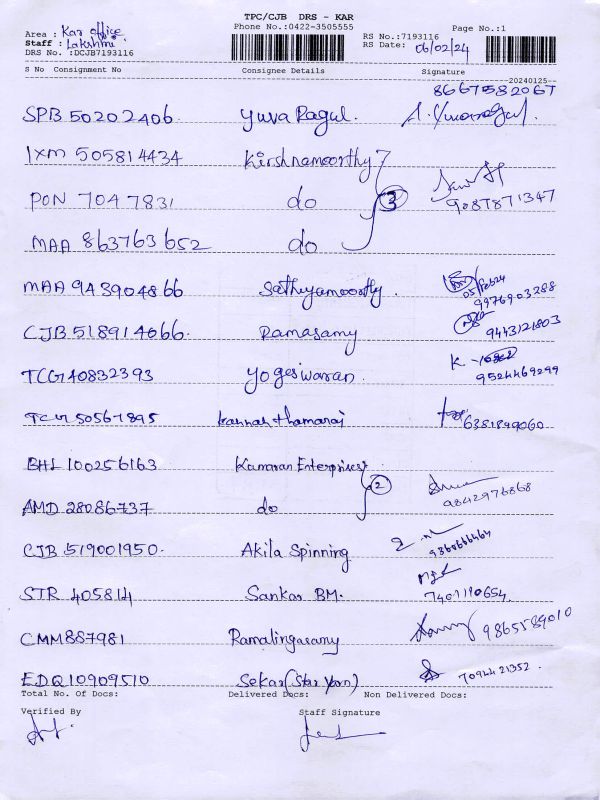 TPC/CJB DRS - KAR
Phone No.:0422-3505555
Page No.:1
Area : Kar office
Staff : Lakshmi
DRS No. :DCJB7193116
RS No.:7193116
RS Date: 06/02/24
S No Consignment No Consignee Details Signature
20240125
8667582067
SPB 50202406 Yuva Ragul.
IXM 505814434 Kirshnamoorthy
PON 7047831 do 3 9087871347
MAA 863763652 do
MAA 943904866 Sathyamoorthy . 05/Feb24 9976903288
CJB 518914066 Ramasamy 9443121803
TCG140832393 Yogeswaran . 9524469299
50567895 6381849060
BHL 100256163 Kamaran Enterprises
AMD 28086737 do 2 9842976868
CJB 519001950. Akila Spinning
STR 405814 Sankar BM. 7401110654
CMM887981 Ramalingasamy 9865589010
EDQ10909510 Sekar (Star Yarn) 7094421352 .
Total No. Of Docs: Delivered Docs: Non Delivered Docs:
Verified By Staff Signature